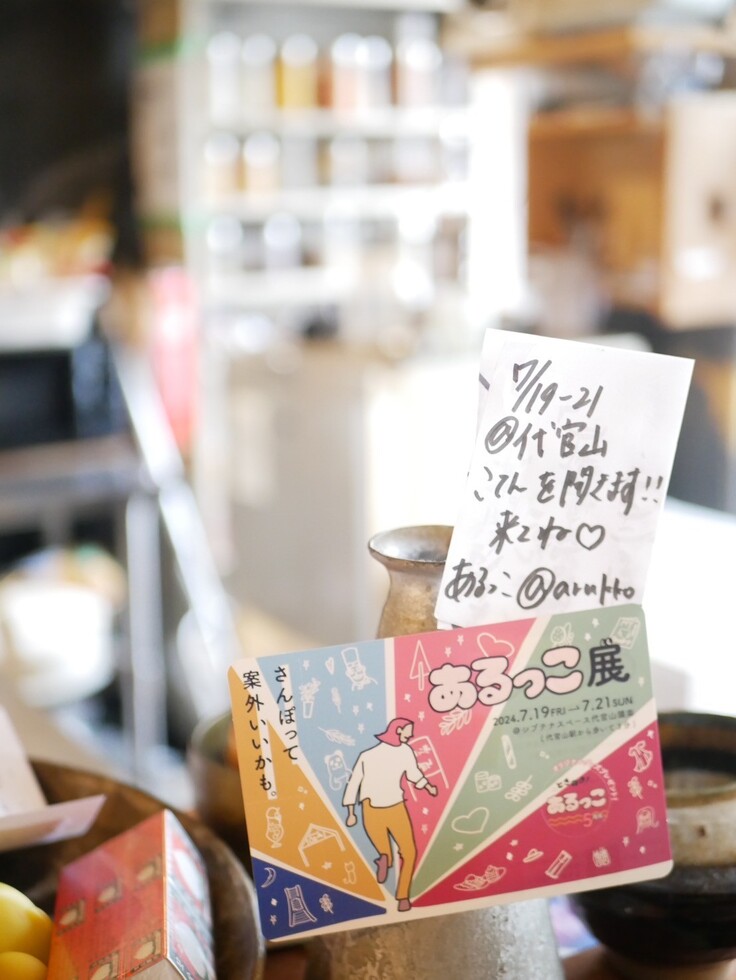 7/19-21
@代官山
こてんを開きます!!
来てね♡
あるっこ @arukko
さんぽって
案外いいかも。
あるっこ展
2024.7.19FRI→7.21SUN
あるっこ